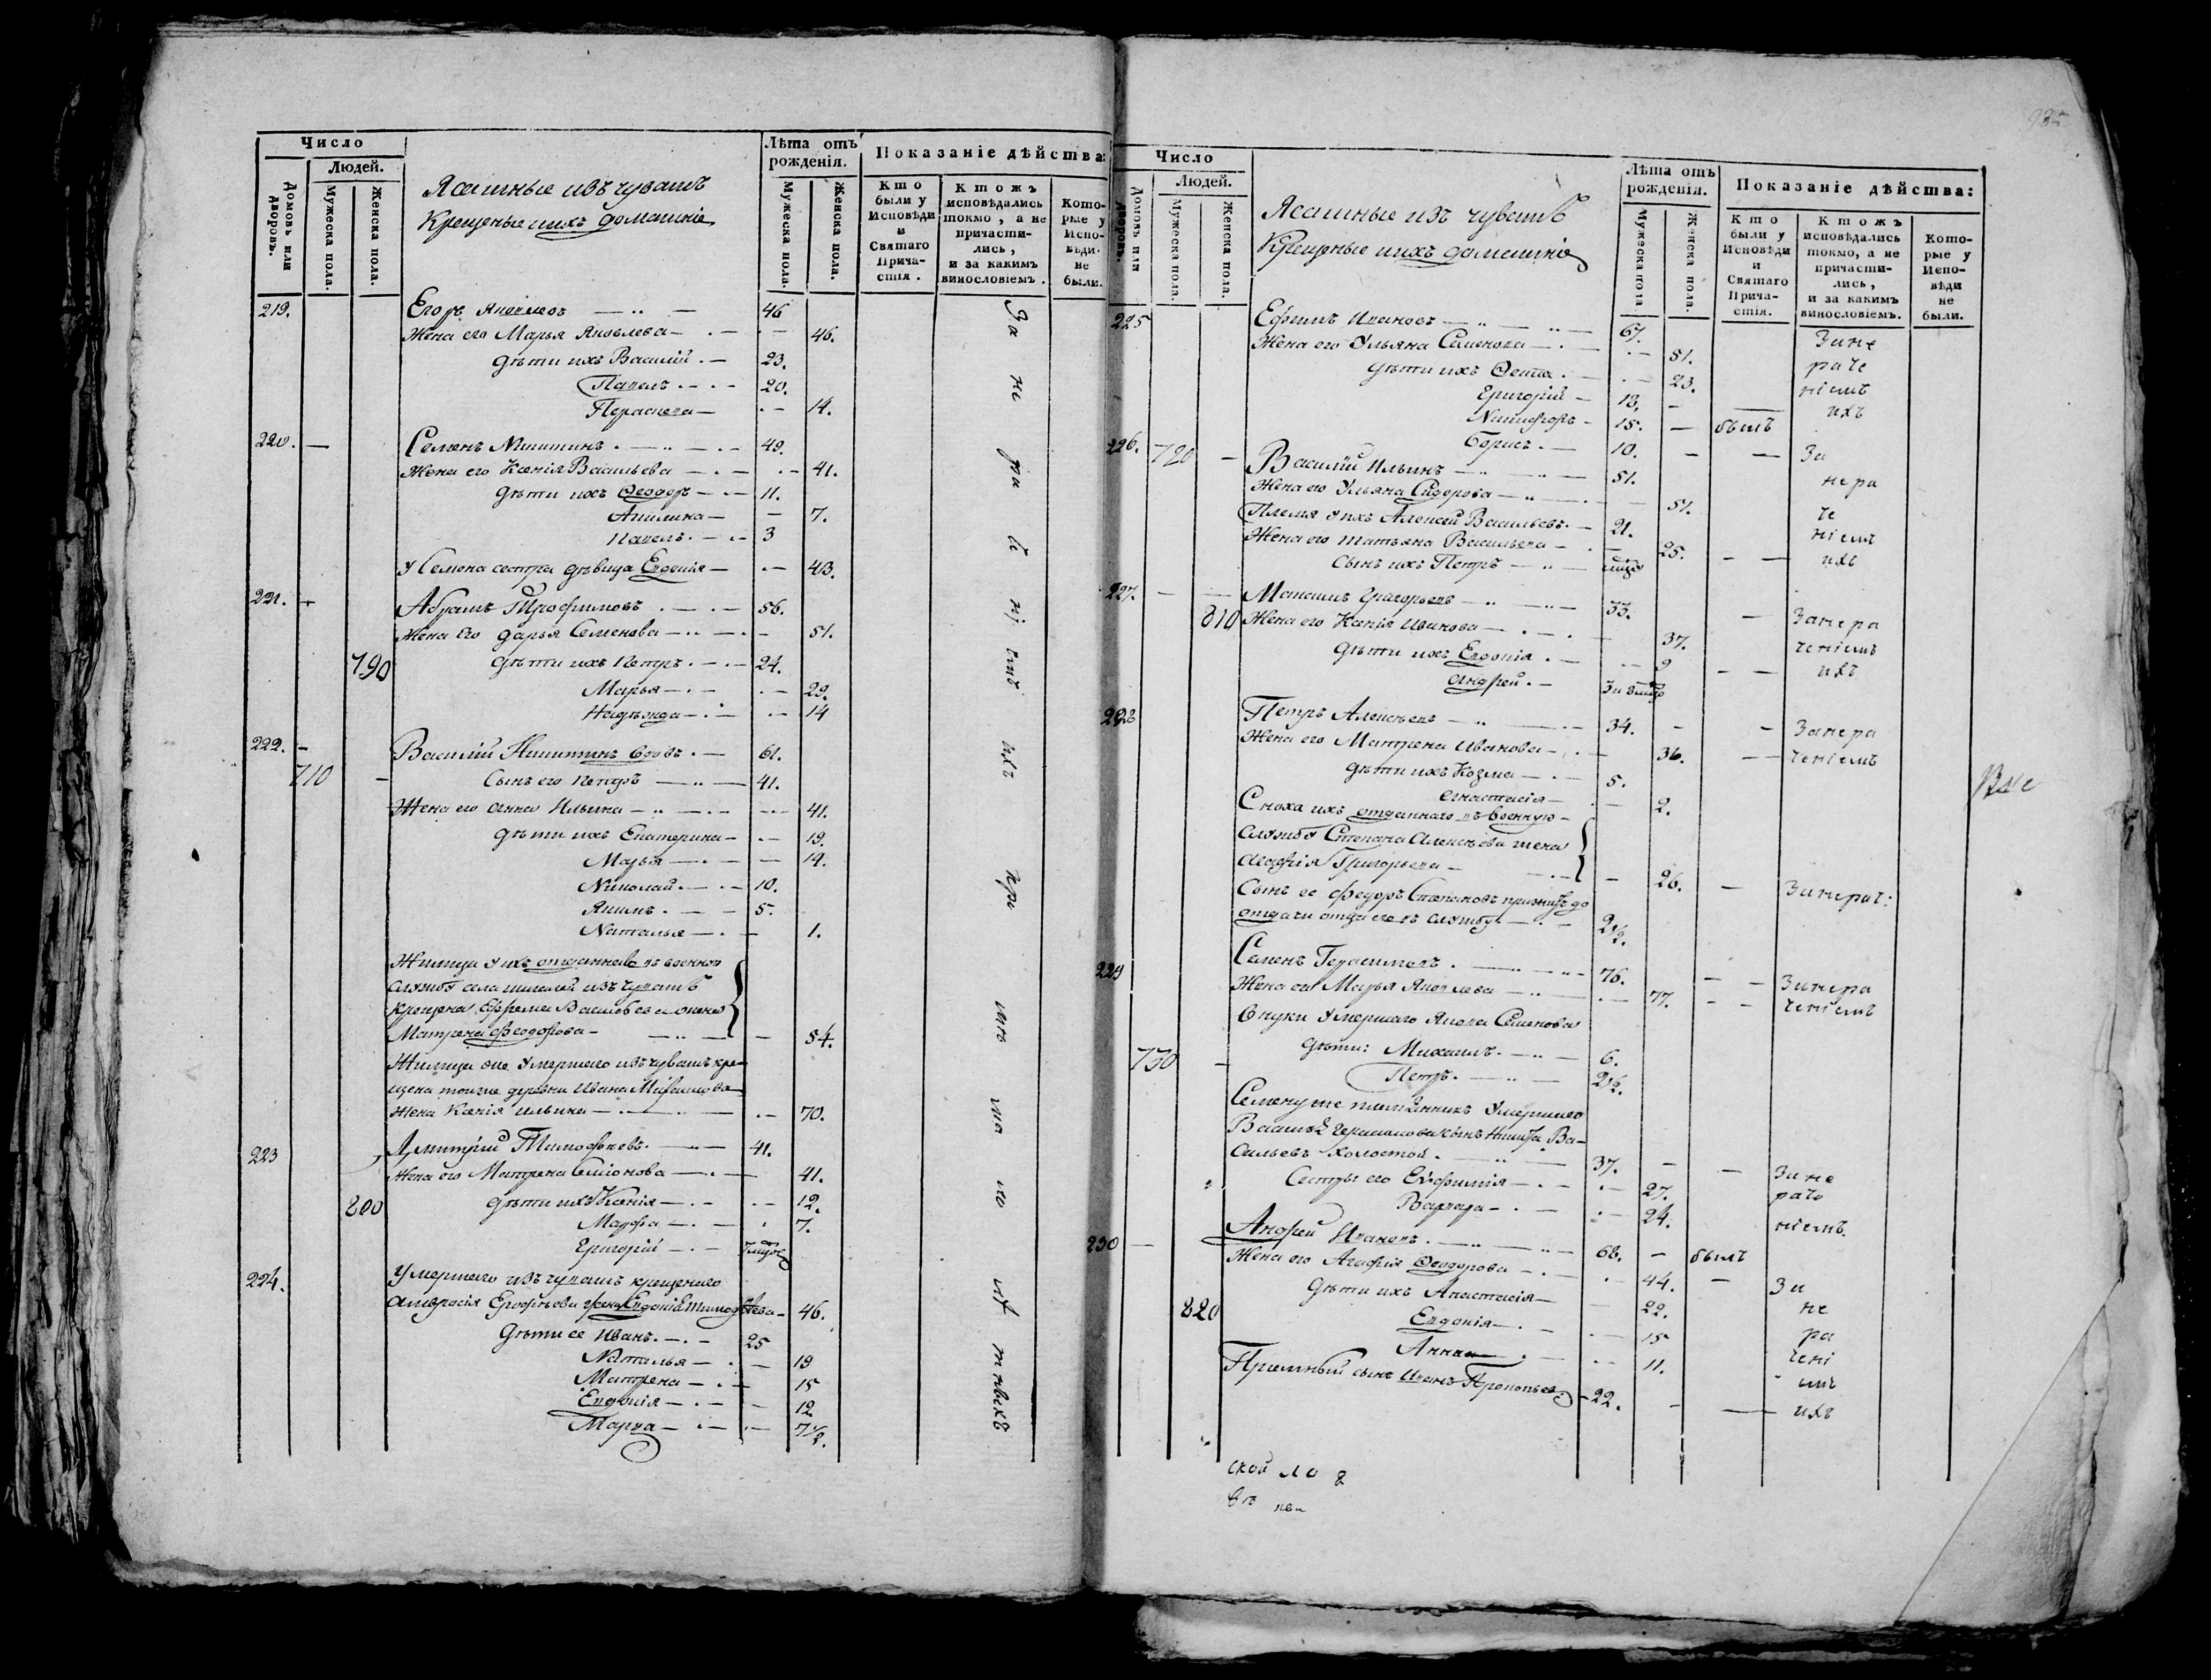 Число
Людей.
Домовъ или дворовъ.
Мужеска пола.
Женска пола.
Ясашные изъ чувашъ
Крещеные и ихъ домашніе
Лѣта отъ рожденія.
Мужеска пола.
Женска пола.
Показаніе дѣйства:
Кто были у Исповѣди и Святаго Прича-стія.
Ктожъ исповѣдались токмо, а не причасти-лись, и за какимъ винословіемъ.
Кото-рые у Испо-вѣди не были.
219. Егоръ Яковлевъ 46
Жена его Марья Яковлева 46.
дѣти ихъ Василій 23.
Павелъ 20.
Пераскева 14.
220. Семенъ Никитинъ 49.
Жена его Ксенія Васильева 41.
дѣти ихъ Ѳеодоръ 11.
Акилина 7.
Павелъ 3
У Семена сестра дѣвица Евдокія 43.
221. Абрамъ Трофимовъ 56.
Жена его Дарья Семенова 51.
790 дѣти ихъ Петръ 24.
Марья 22.
Надѣжда 14
222. Василій Никитинъ вдовъ 61.
710 Сынъ его Петръ 41.
Жена его Анна Ильина 41.
дѣти ихъ Екатерина 19.
Марья 14.
Николай 10.
Якимъ 5.
Наталья 1.
Жилица у ихъ отданнаго въ военную
службу села изъ чувашъ
крещена Ефрема Васильева жена
Матрена Ѳеодорова 54.
Жилица же умершаго изъ чувашъ кре-
щена тоже деревни Ивана Михаилова
жена Ксенія Ильина 70.
223 Дмитрій Тимофѣевъ 41.
Жена его Матрена Семіонова 41.
800 дѣти ихъ Ксенія 12.
Марфа 7.
Григорій
224. Умершаго изъ чувашъ крещенаго
Амвросія Ерофѣева жена Евдокія Тимофѣева 46.
дѣти ее Иванъ 25
Наталья 19
Матрена 15
Евдокія 12
Марѳа 7½.
За не ра че ні емъ ихъ при
Число
Людей.
Домовъ или дворовъ.
Мужеска пола.
Женска пола.
Ясашные изъ чувашъ
Крещеные и ихъ домашніе
Лѣта отъ рожденія.
Мужеска пола
Женска пола.
Показаніе дѣйства:
Кто были у Исповѣди и Святаго Прича-стія.
Ктожъ исповѣдались токмо, а не причасти-лись, и за какимъ винословіемъ.
Кото-рые у Испо-вѣди не были.
225 Ефимъ Ивановъ 67. За не
Жена его Ульяна Семенова 51. раче
дѣти ихъ Ѳекла 23. ніемъ
Григорій 18. ихъ
Никифоръ 15. былъ
Борисъ 10.
226. 720 Василій Ильинъ 51. За
Жена его Ульяна Сидорова 51. нера
Племя у ихъ Алексей Васильевъ 21. че
Жена его Татьяна Васильева 25. ніемъ
Сынъ ихъ Петръ ихъ
227. Максимъ Григорьевъ 33. Занера
810 Жена его Ксенія Иванова 37. ченіемъ
дѣти ихъ Евдокія 9 ихъ
Андрей
228 Петръ Алексѣевъ 34. Занера
Жена его Матрена Иванова 36. ченіемъ
дѣти ихъ Козма 5.
Анастасія 2.
Сноха ихъ отданнаго въ военную
службу Степана Алексѣева жена
Агафія Григорьева 26. Занерач:
Сынъ ее Федоръ Степановъ прижитъ до
отдачи отца его въ службу 2½.
229 Семенъ Герасимовъ 76. Занера
Жена его Марья Яковлева 77. ченіемъ
Внуки умершаго Якова Семенова
730 дѣти: Михаилъ 6.
Петръ 2½.
Семену же племянникъ умершаго
Василья Герасимова сынъ Никита Ва-
сильевъ холостой 37. За не
Сестры его Евфимія 27. раче
Варвара 24. ніемъ.
230 Андрей Ивановъ 68. былъ
Жена его Агафія Ѳеодорова 44. За
дѣти ихъ Анастасія 22. не
820 Евдокія 15 ра
Анна 11. чені
Пріемный сынъ Иванъ Прокопьевъ 22. емъ
ихъ